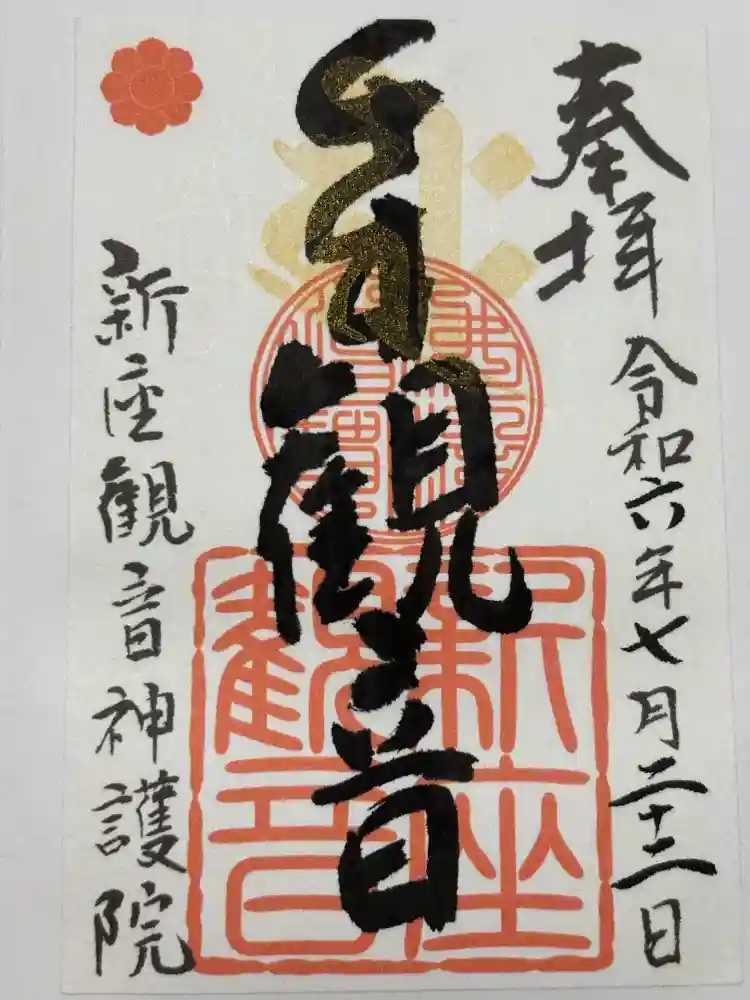 奉拝
令和六年七月二十二日
観音
新座観音神護院
新座
観音